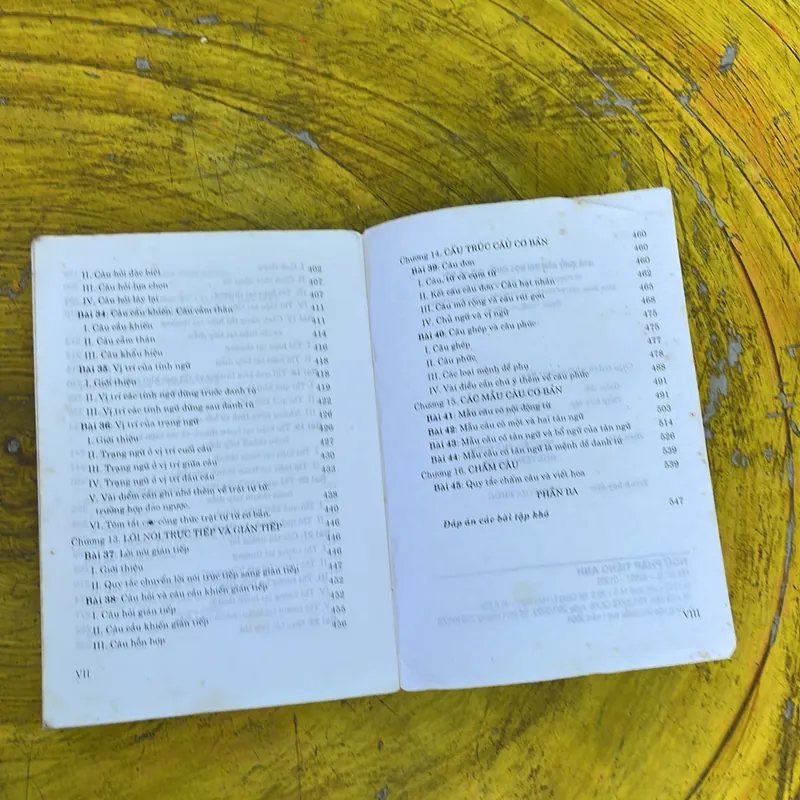 II. Câu hỏi đặc biệt 402
III. Câu hỏi lựa chọn 407
IV. Câu hỏi láy lại 407
Bài 34: Câu cầu khiến. Câu cảm thán 411
I. Câu cầu khiến 411
II. Câu cảm thán 414
III. Câu khẩu hiệu 416
Bài 35: Vị trí của tính ngữ 418
I. Giới thiệu 418
II. Vị trí các tính ngữ đứng trước danh từ 419
III. Vị trí các tính ngữ đứng sau danh từ 422
Bài 36: Vị trí của trạng ngữ 426
I. Giới thiệu 426
II. Trạng ngữ ở vị trí cuối câu 427
III. Trạng ngữ ở vị trí giữa câu 430
IV. Trạng ngữ ở vị trí đầu câu 433
V. Vài điểm cần ghi nhớ thêm về trật tự từ.
trường hợp đảo ngược. 438
VI. Tóm tắt các công thức trật tự từ cơ bản. 440
Chương 13. LỜI NÓI TRỰC TIẾP VÀ GIÁN TIẾP 446
Bài 37: Lời nói gián tiếp 446
I. Giới thiệu 446
II. Quy tắc chuyển lời nói trực tiếp sang gián tiếp 447
Bài 38: Câu hỏi và câu cầu khiến gián tiếp 452
I. Câu hỏi gián tiếp 452
II. Câu cầu khiến gián tiếp 455
III. Câu hỗn hợp 456
VII
Chương 14. CẤU TRÚC CÂU CƠ BẢN 460
Bài 39: Câu đơn 460
I. Câu, từ và cụm từ 460
II. Kết cấu câu đơn - Câu hạt nhân 462
III. Câu mở rộng và câu rút gọn 465
IV. Chủ ngữ và vị ngữ 468
Bài 40: Câu ghép và câu phức. 475
I. Câu ghép 475
II. Câu phức 477
III. Các loại mệnh đề phụ 478
IV. Vài điểm cần chú ý thêm về câu phức 488
Chương 15. CÁC MẪU CÂU CƠ BẢN 491
Bài 41: Mẫu câu có nội động từ 491
Bài 42: Mẫu câu có một và hai tân ngữ 503
Bài 43: Mẫu câu có tân ngữ và bổ ngữ của tân ngữ 514
Bài 44: Mẫu câu có tân ngữ là mệnh đề danh từ 526
Chương 16. CHẤM CÂU 539
Bài 45: Quy tắc chấm câu và viết hoa 539
PHẦN BA
Đáp án các bài tập khó 547
VIII